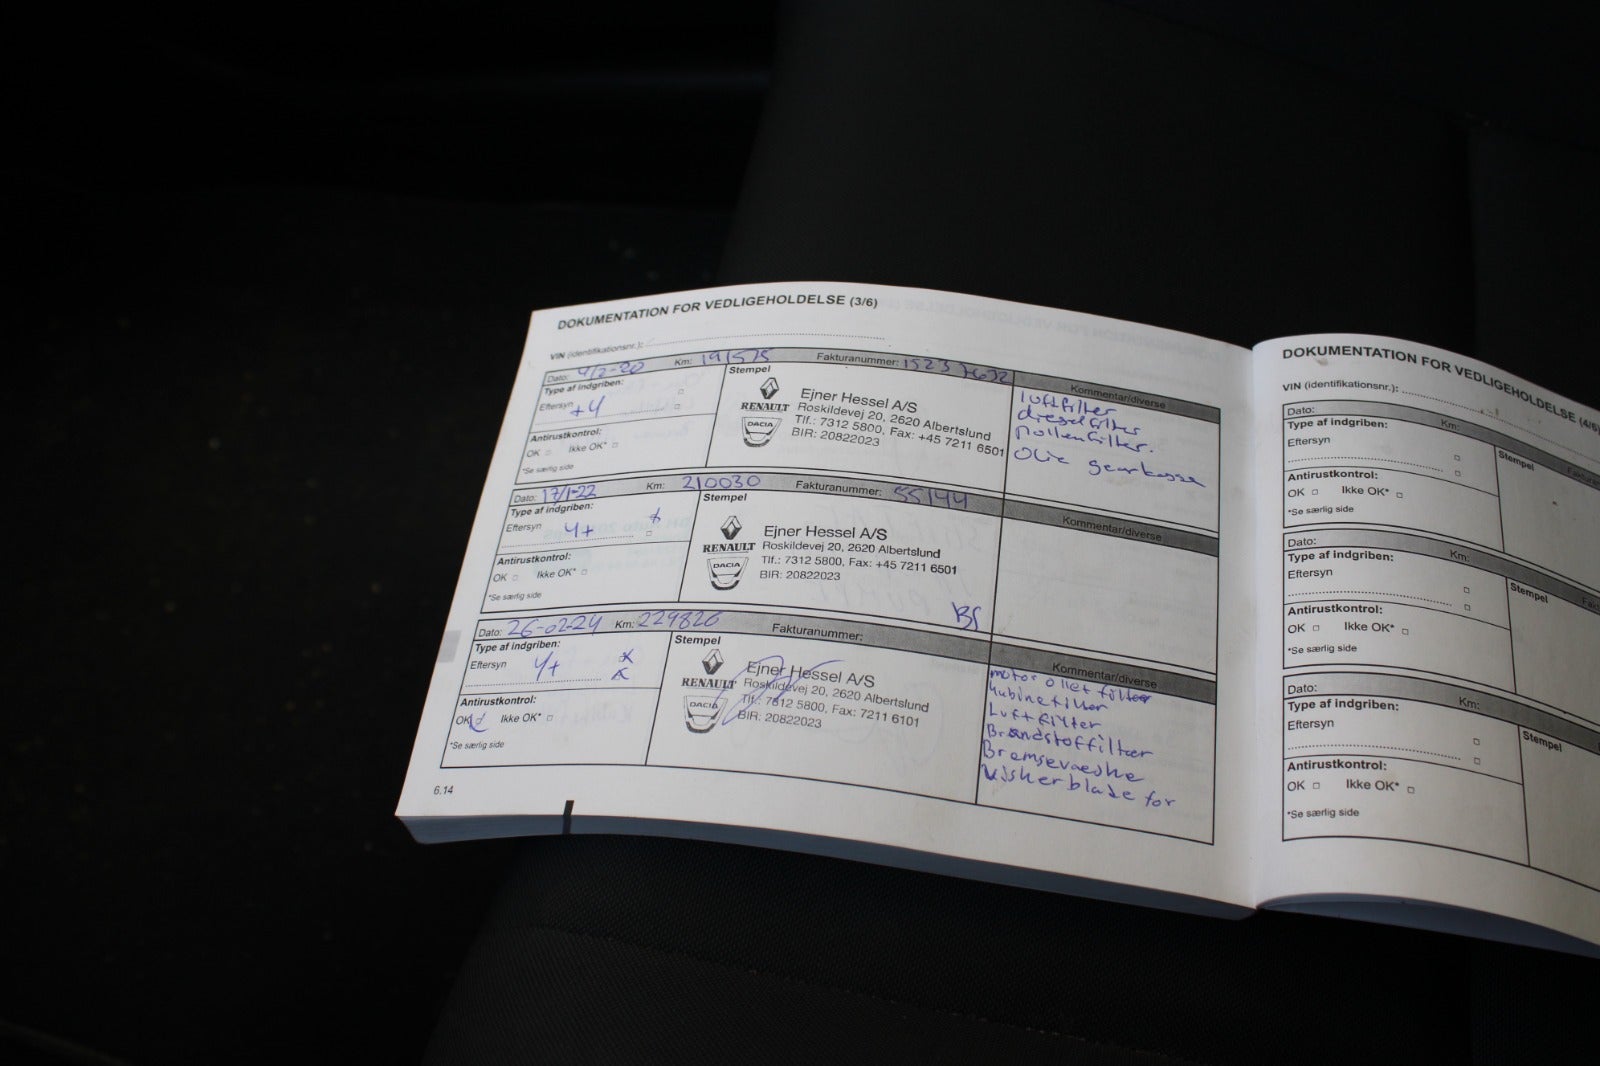 DOKUMENTATION FOR VEDLIGEHOLDELSE (3/6)
VIN (identifikationsnr.):
Dato: 4/2-20 Km: 191575 Fakturanummer:
Type af indgriben:
Eftersyn +4
Antirustkontrol:
OK Ikke OK*
*Se særlig side
Stempel
RENAULT
DACIA
Ejner Hessel A/S
Roskildevej 20, 2620 Albertslund
Tlf.: 7312 5800, Fax: +45 7211 6501
BIR: 20822023
Kommentar/diverse
luftfilter
dieselfilter
pollenfilter.
Olie gearkasse
Dato: 17/1-22 Km: 210030 Fakturanummer: 55144
Type af indgriben:
Eftersyn 4+
Antirustkontrol:
OK Ikke OK*
*Se særlig side
Stempel
RENAULT
DACIA
Ejner Hessel A/S
Roskildevej 20, 2620 Albertslund
Tlf.: 7312 5800, Fax: +45 7211 6501
BIR: 20822023
BS
Kommentar/diverse
Dato: 26-02-24 Km: 229826 Fakturanummer:
Type af indgriben:
Eftersyn 4+
Antirustkontrol:
OK Ikke OK*
*Se særlig side
Stempel
RENAULT
DACIA
Ejner Hessel A/S
Roskildevej 20, 2620 Albertslund
Tlf.: 7312 5800, Fax: 7211 6101
BIR: 20822023
Kommentar/diverse
motor oliet filter
kabinefilter
Luftfilter
Brændstoffilter
Bremsevæske
Viskerblade for
6.14
DOKUMENTATION FOR VEDLIGEHOLDELSE (4/6)
VIN (identifikationsnr.):
Dato: Km:
Type af indgriben:
Eftersyn
Antirustkontrol:
OK Ikke OK*
*Se særlig side
Stempel
Dato: Km:
Type af indgriben:
Eftersyn
Antirustkontrol:
OK Ikke OK*
*Se særlig side
Stempel
Dato: Km:
Type af indgriben:
Eftersyn
Antirustkontrol:
OK Ikke OK*
*Se særlig side
Stempel